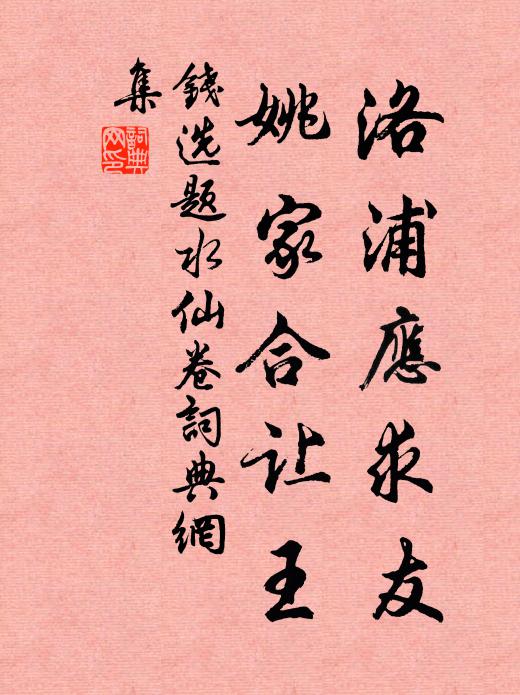 洛浦應求友
姚家合让王
錢选题水仙卷詞典網
集
詞典
网印